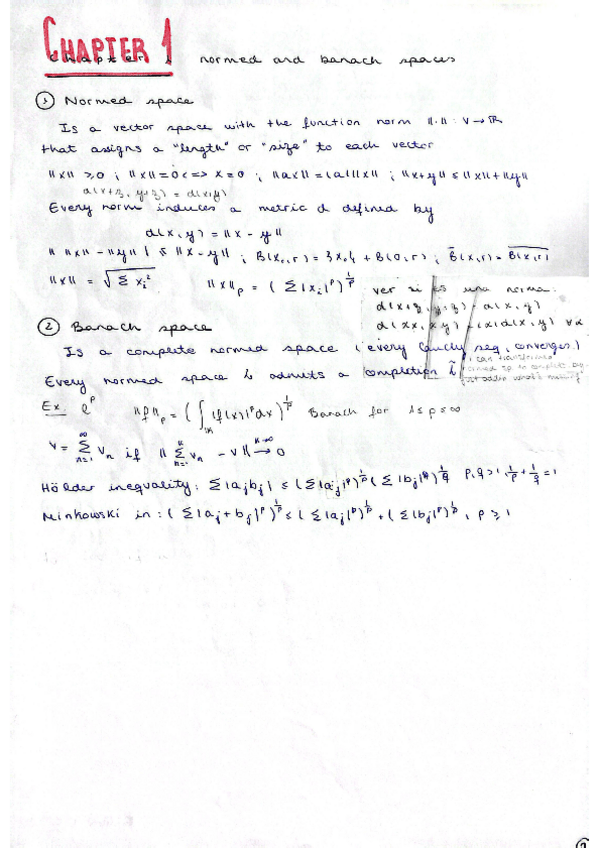 CHAPTER 1
Chapter 1 normed and banach spaces
① Normed space
Is a vector space with the function norm ||·|| : V → ℝ
that assigns a "length" or "size" to each vector
||x|| ≥ 0 ; ||x|| = 0 <=> x = 0 ; ||ax|| = |a| ||x|| ; ||x+y|| ≤ ||x|| + ||y||
d(x+z, y+z) = d(x,y)
Every norm induces a metric d defined by
d(x,y) = ||x - y||
| ||x|| - ||y|| | ≤ ||x - y|| ; B(x₀,r) = {x₀} + B(0,r) ; B̄(x,r) = \overline{B(x,r)}
||x|| = √(Σ xᵢ²) ||x||ₚ = (Σ |xᵢ|ᵖ)^{1/p}
ver si es una norma:
d(x+z, y+z) = d(x,y)
d(αx, αy) = |α| d(x,y) ∀α
② Banach space
Is a complete normed space (every Cauchy seq. converges)
Every normed space L admits a completion L̃
Ex: ℓᵖ ||f||ₚ = (∫ |f(x)|ᵖ dx)^{1/p} Banach for 1 ≤ p ≤ ∞
v = Σ_{n=1}^{∞} vₙ if || Σ_{n=1}^{k} vₙ - v || →^{k→∞} 0
Hölder inequality: Σ |aⱼbⱼ| ≤ (Σ |aⱼ|ᵖ)^{1/p} (Σ |bⱼ|^q)^{1/q} p,q > 1, 1/p + 1/q = 1
Minkowski in: (Σ |aⱼ + bⱼ|ᵖ)^{1/p} ≤ (Σ |aⱼ|ᵖ)^{1/p} + (Σ |bⱼ|ᵖ)^{1/p}, p ≥ 1